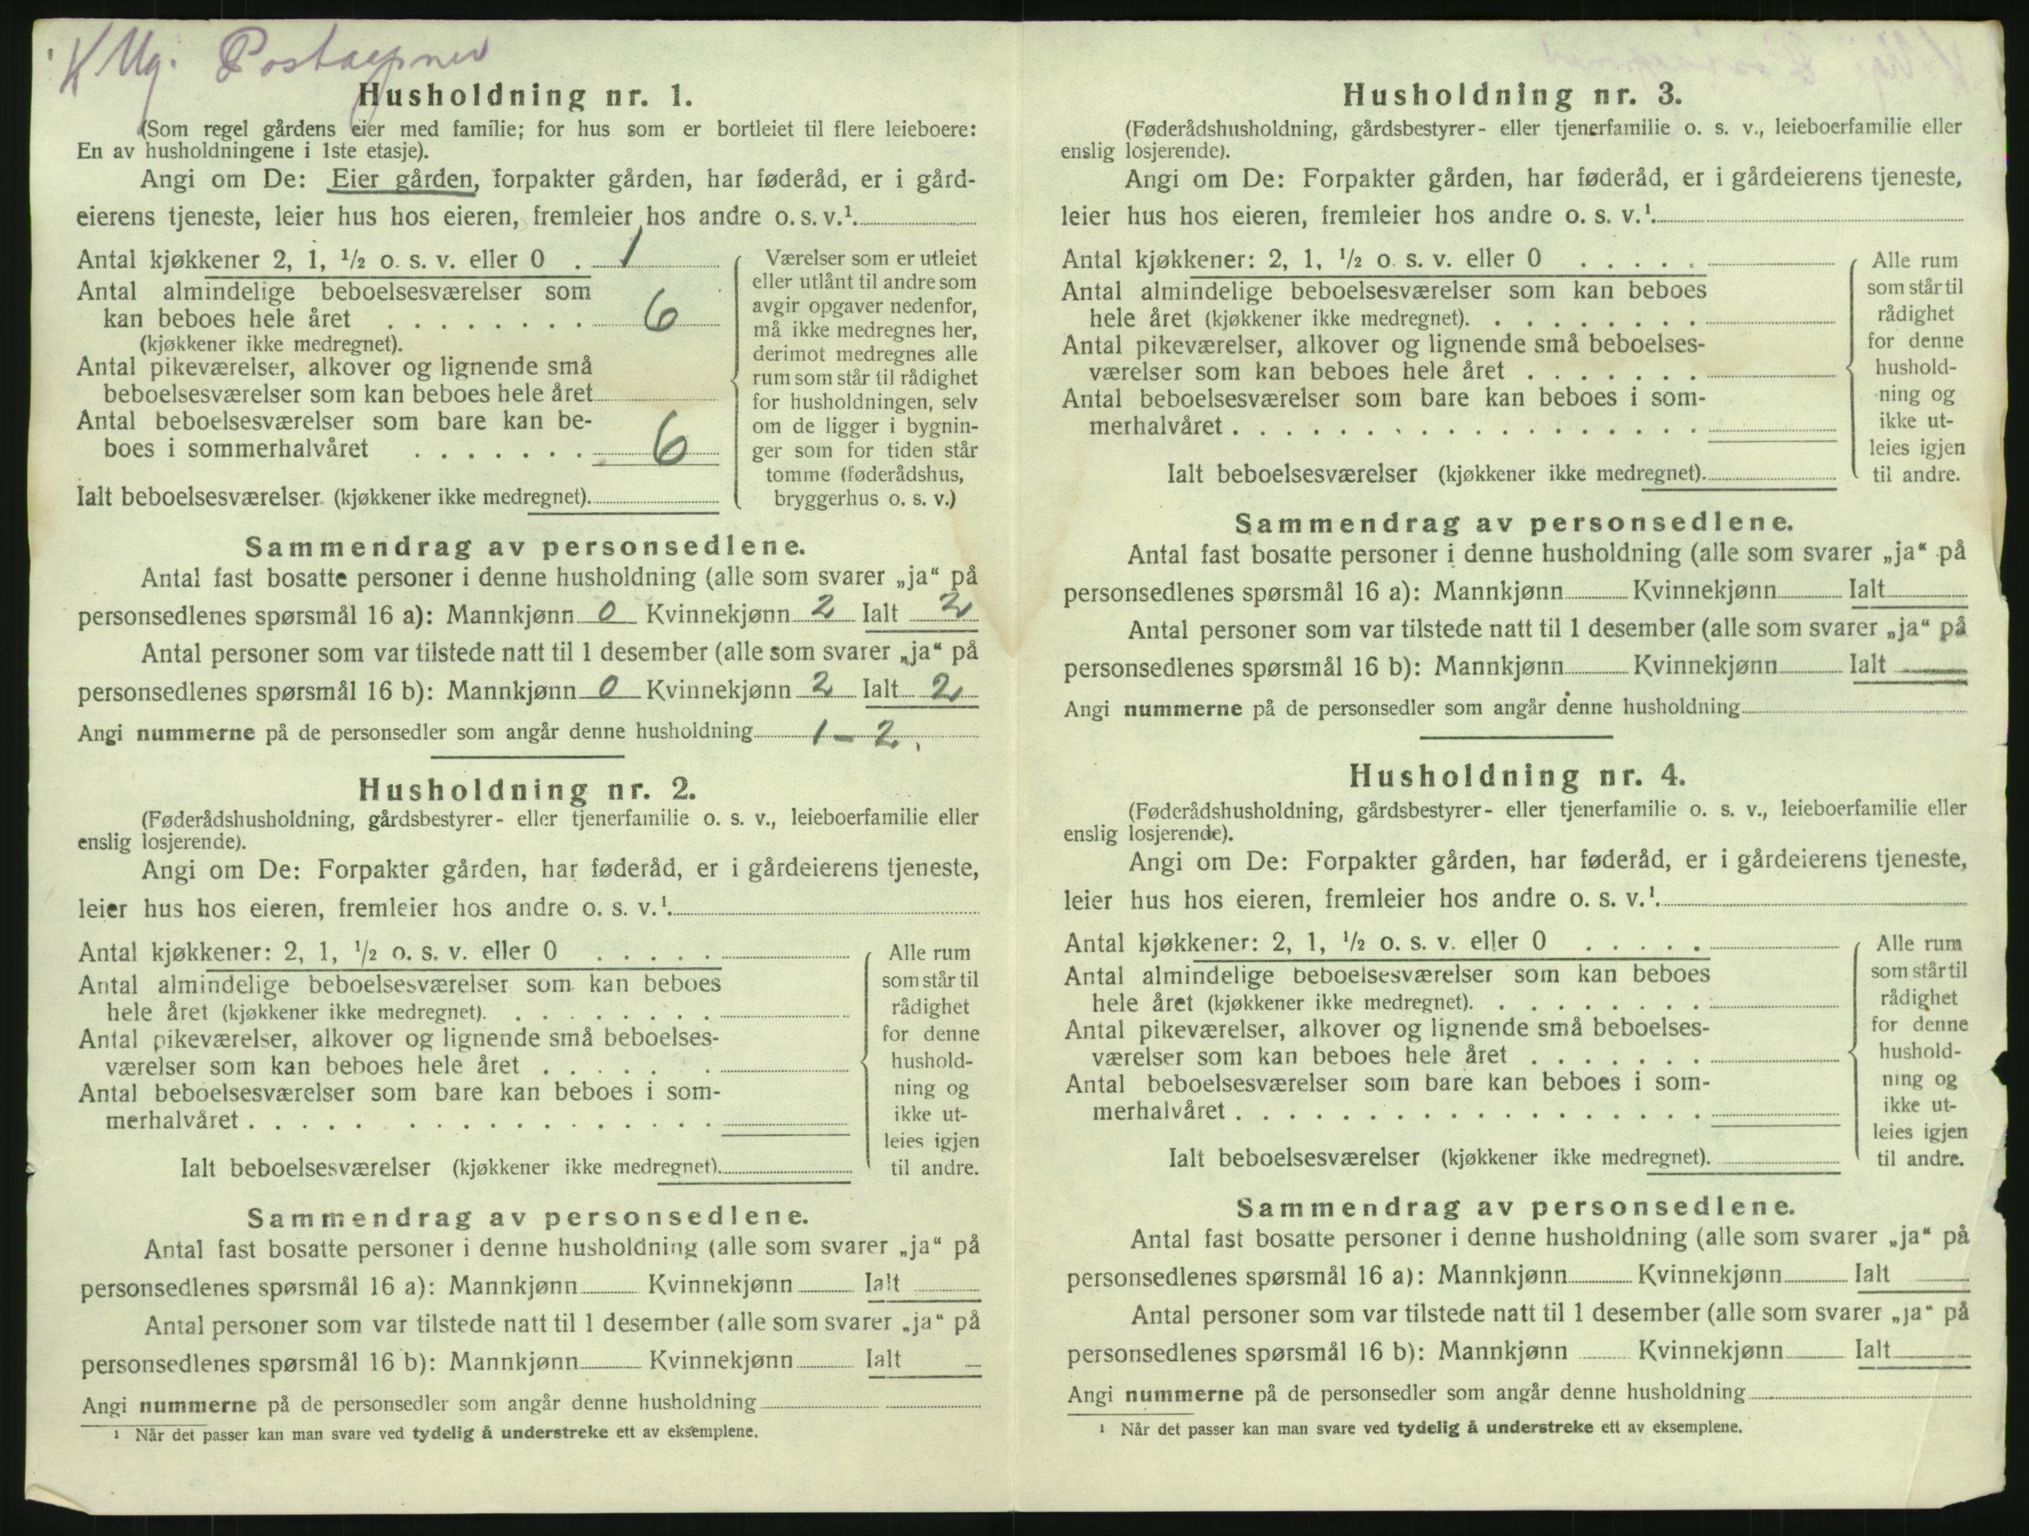 K Ug. Postaapner
Husholdning nr. 1.
(Som regel gårdens eier med familie; for hus som er bortleiet til flere leieboere:
En av husholdningene i 1ste etasje).
Angi om De: Eier gården, forpakter gården, har føderåd, er i gård-
eierens tjeneste, leier hus hos eieren, fremleier hos andre o. s. v.¹
Antal kjøkkener 2, 1, ½ o. s. v. eller 0 . 1
Antal almindelige beboelsesværelser som
kan beboes hele året . . . . . . . . 6
(kjøkkener ikke medregnet).
Antal pikeværelser, alkover og lignende små
beboelsesværelser som kan beboes hele året
Antal beboelsesværelser som bare kan be-
boes i sommerhalvåret . . . . . . . 6
Ialt beboelsesværelser (kjøkkener ikke medregnet).
Værelser som er utleiet
eller utlånt til andre som
avgir opgaver nedenfor,
må ikke medregnes her,
derimot medregnes alle
rum som står til rådighet
for husholdningen, selv
om de ligger i bygnin-
ger som for tiden står
tomme (føderådshus,
bryggerhus o. s. v.)
Sammendrag av personsedlene.
Antal fast bosatte personer i denne husholdning (alle som svarer „ja“ på
personsedlenes spørsmål 16 a): Mannkjønn 0 Kvinnekjønn 2 Ialt 2
Antal personer som var tilstede natt til 1 desember (alle som svarer „ja“ på
personsedlenes spørsmål 16 b): Mannkjønn 0 Kvinnekjønn 2 Ialt 2
Angi nummerne på de personsedler som angår denne husholdning 1-2.
Husholdning nr. 2.
(Føderådshusholdning, gårdsbestyrer- eller tjenerfamilie o. s. v., leieboerfamilie eller
enslig losjerende).
Angi om De: Forpakter gården, har føderåd, er i gårdeierens tjeneste,
leier hus hos eieren, fremleier hos andre o. s. v.¹
Antal kjøkkener: 2, 1, ½ o. s. v. eller 0 . . . . .
Antal almindelige beboelsesværelser som kan beboes
hele året (kjøkkener ikke medregnet). . . . . . . . .
Antal pikeværelser, alkover og lignende små beboelses-
værelser som kan beboes hele året . . . . . . .
Antal beboelsesværelser som bare kan beboes i som-
merhalvåret . . . . . . . . . . . . . . . . . .
Ialt beboelsesværelser (kjøkkener ikke medregnet).
Alle rum
som står til
rådighet
for denne
hushold-
ning og
ikke ut-
leies igjen
til andre.
Sammendrag av personsedlene.
Antal fast bosatte personer i denne husholdning (alle som svarer „ja“ på
personsedlenes spørsmål 16 a): Mannkjønn Kvinnekjønn Ialt
Antal personer som var tilstede natt til 1 desember (alle som svarer „ja“ på
personsedlenes spørsmål 16 b): Mannkjønn Kvinnekjønn Ialt
Angi nummerne på de personsedler som angår denne husholdning
¹ Når det passer kan man svare ved tydelig å understreke ett av eksemplene.
Husholdning nr. 3.
(Føderådshusholdning, gårdsbestyrer- eller tjenerfamilie o. s. v., leieboerfamilie eller
enslig losjerende).
Angi om De: Forpakter gården, har føderåd, er i gårdeierens tjeneste,
leier hus hos eieren, fremleier hos andre o. s. v.¹
Antal kjøkkener: 2, 1, ½ o. s. v. eller 0 . . . . .
Antal almindelige beboelsesværelser som kan beboes
hele året (kjøkkener ikke medregnet). . . . . . . . .
Antal pikeværelser, alkover og lignende små beboelses-
værelser som kan beboes hele året . . . . . . .
Antal beboelsesværelser som bare kan beboes i som-
merhalvåret . . . . . . . . . . . . . . . . . .
Ialt beboelsesværelser (kjøkkener ikke medregnet).
Alle rum
som står til
rådighet
for denne
hushold-
ning og
ikke ut-
leies igjen
til andre.
Sammendrag av personsedlene.
Antal fast bosatte personer i denne husholdning (alle som svarer „ja“ på
personsedlenes spørsmål 16 a): Mannkjønn Kvinnekjønn Ialt
Antal personer som var tilstede natt til 1 desember (alle som svarer „ja“ på
personsedlenes spørsmål 16 b): Mannkjønn Kvinnekjønn Ialt
Angi nummerne på de personsedler som angår denne husholdning
Husholdning nr. 4.
(Føderådshusholdning, gårdsbestyrer- eller tjenerfamilie o. s. v., leieboerfamilie eller
enslig losjerende).
Angi om De: Forpakter gården, har føderåd, er i gårdeierens tjeneste,
leier hus hos eieren, fremleier hos andre o. s. v.¹
Antal kjøkkener: 2, 1, ½ o. s. v. eller 0 . . . . .
Antal almindelige beboelsesværelser som kan beboes
hele året (kjøkkener ikke medregnet). . . . . . . . .
Antal pikeværelser, alkover og lignende små beboelses-
værelser som kan beboes hele året . . . . . . .
Antal beboelsesværelser som bare kan beboes i som-
merhalvåret . . . . . . . . . . . . . . . . . .
Ialt beboelsesværelser (kjøkkener ikke medregnet).
Alle rum
som står til
rådighet
for denne
hushold-
ning og
ikke ut-
leies igjen
til andre.
Sammendrag av personsedlene.
Antal fast bosatte personer i denne husholdning (alle som svarer „ja“ på
personsedlenes spørsmål 16 a): Mannkjønn Kvinnekjønn Ialt
Antal personer som var tilstede natt til 1 desember (alle som svarer „ja“ på
personsedlenes spørsmål 16 b): Mannkjønn Kvinnekjønn Ialt
Angi nummerne på de personsedler som angår denne husholdning
¹ Når det passer kan man svare ved tydelig å understreke ett av eksemplene.